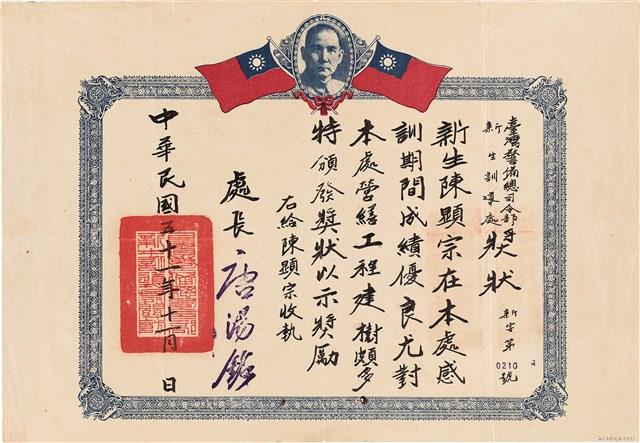 臺灣警備總司令部
新生訓導處
獎狀
新字第
0210
號
新生陳顯宗在本處感
訓期間成績優良尤對
本處營繕工程建樹頗多
特頒發獎狀以示獎勵
右給陳顯宗收執
處長 唐湯銘
中華民國五十一年十一月 日